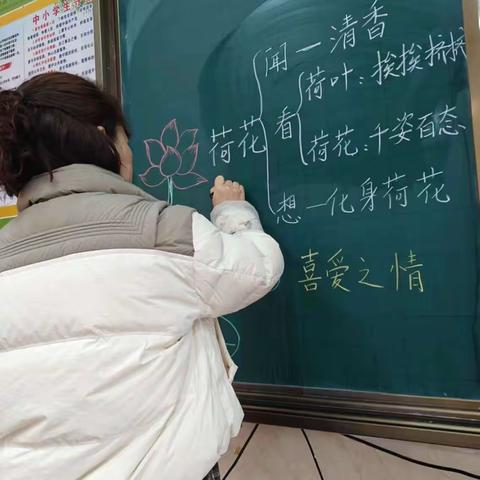 中小学生
闻一清香
荷叶：挨挨挤挤
荷花
看
荷花：千姿百态
想一化身荷花
喜爱之情